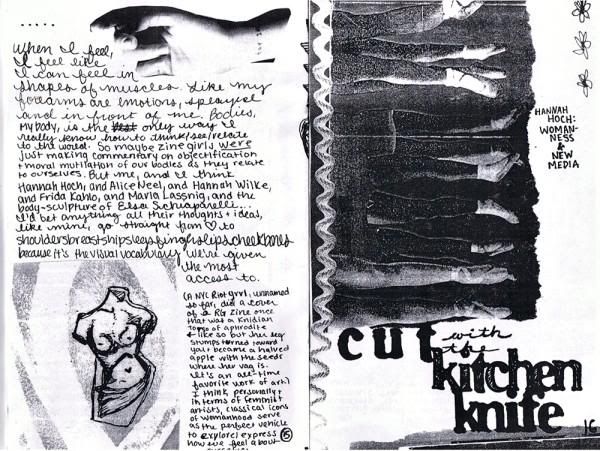 .....
When I feel,
I feel like
I can feel in
shapes of muscles. Like my
forearms are emotions, splayed
and in front of me. Bodies,
My body, is the only way I
really know how to think/see/relate
to the world. So maybe zine girls were
just making commentary on objectification
+ moral mutilation of our bodies as they relate
to ourselves. But me, and I think
Hannah Hoch, and Alice Neel, and Hannah Wilke,
and Frida Kahlo, and Maria Lassnig, and the
body-sculpture of Elsa Schiaparelli...
I'd bet anything all their thoughts + ideas,
like mine, go straight from ♡ to
shouldersbreastshipslegsfingerslipscheekbones
because it's the visual vocabulary we're given
the most
access to.
(A NYC Riot grrrl, unnamed
so far, did a cover
of a RG zine once
that was a Knidian
Torso of aphrodite
+ like so but her leg
stumps turned toward
you + became a halved
apple with the seeds
where her vag is.
It's an all-time
favorite work of art.)
I think personally
in terms of feminist
artists, classical icons
of womanhood serve
as the perfect vehicle
to explore/express
how we feel about
15
HANNAH
HOCH:
WOMAN-
NESS
&
NEW
MEDIA
cut with
the
kitchen
knife
16